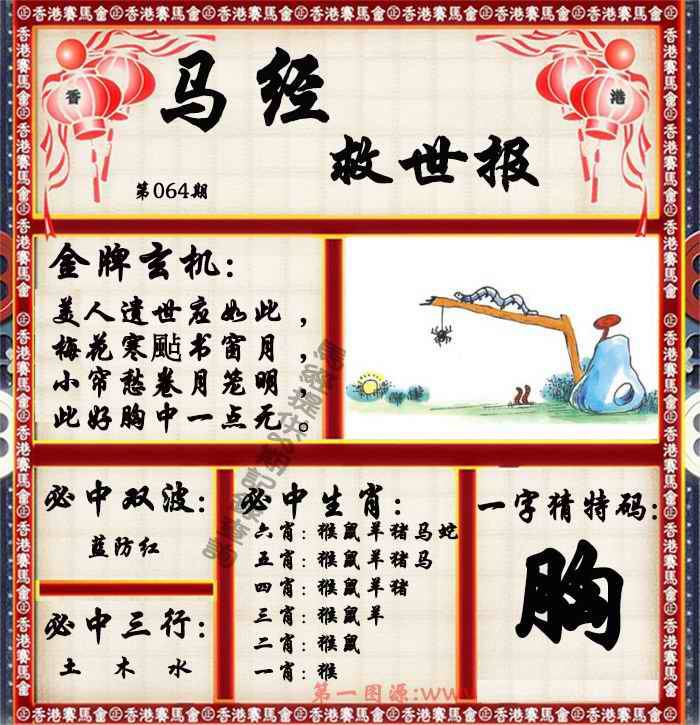 香港賽馬會
香
港
马经
救世报
第064期
金牌玄机：
美人遗世应如此，
梅花寒飐书窗月，
小帘愁卷月笼明，
此好胸中一点无。
必中双波：
蓝防红
必中三行：
土 木 水
必中生肖：
六肖：猴鼠羊猪马蛇
五肖：猴鼠羊猪马
四肖：猴鼠羊猪
三肖：猴鼠羊
二肖：猴鼠
一肖：猴
一字猜特码：
胸
第一图源:www